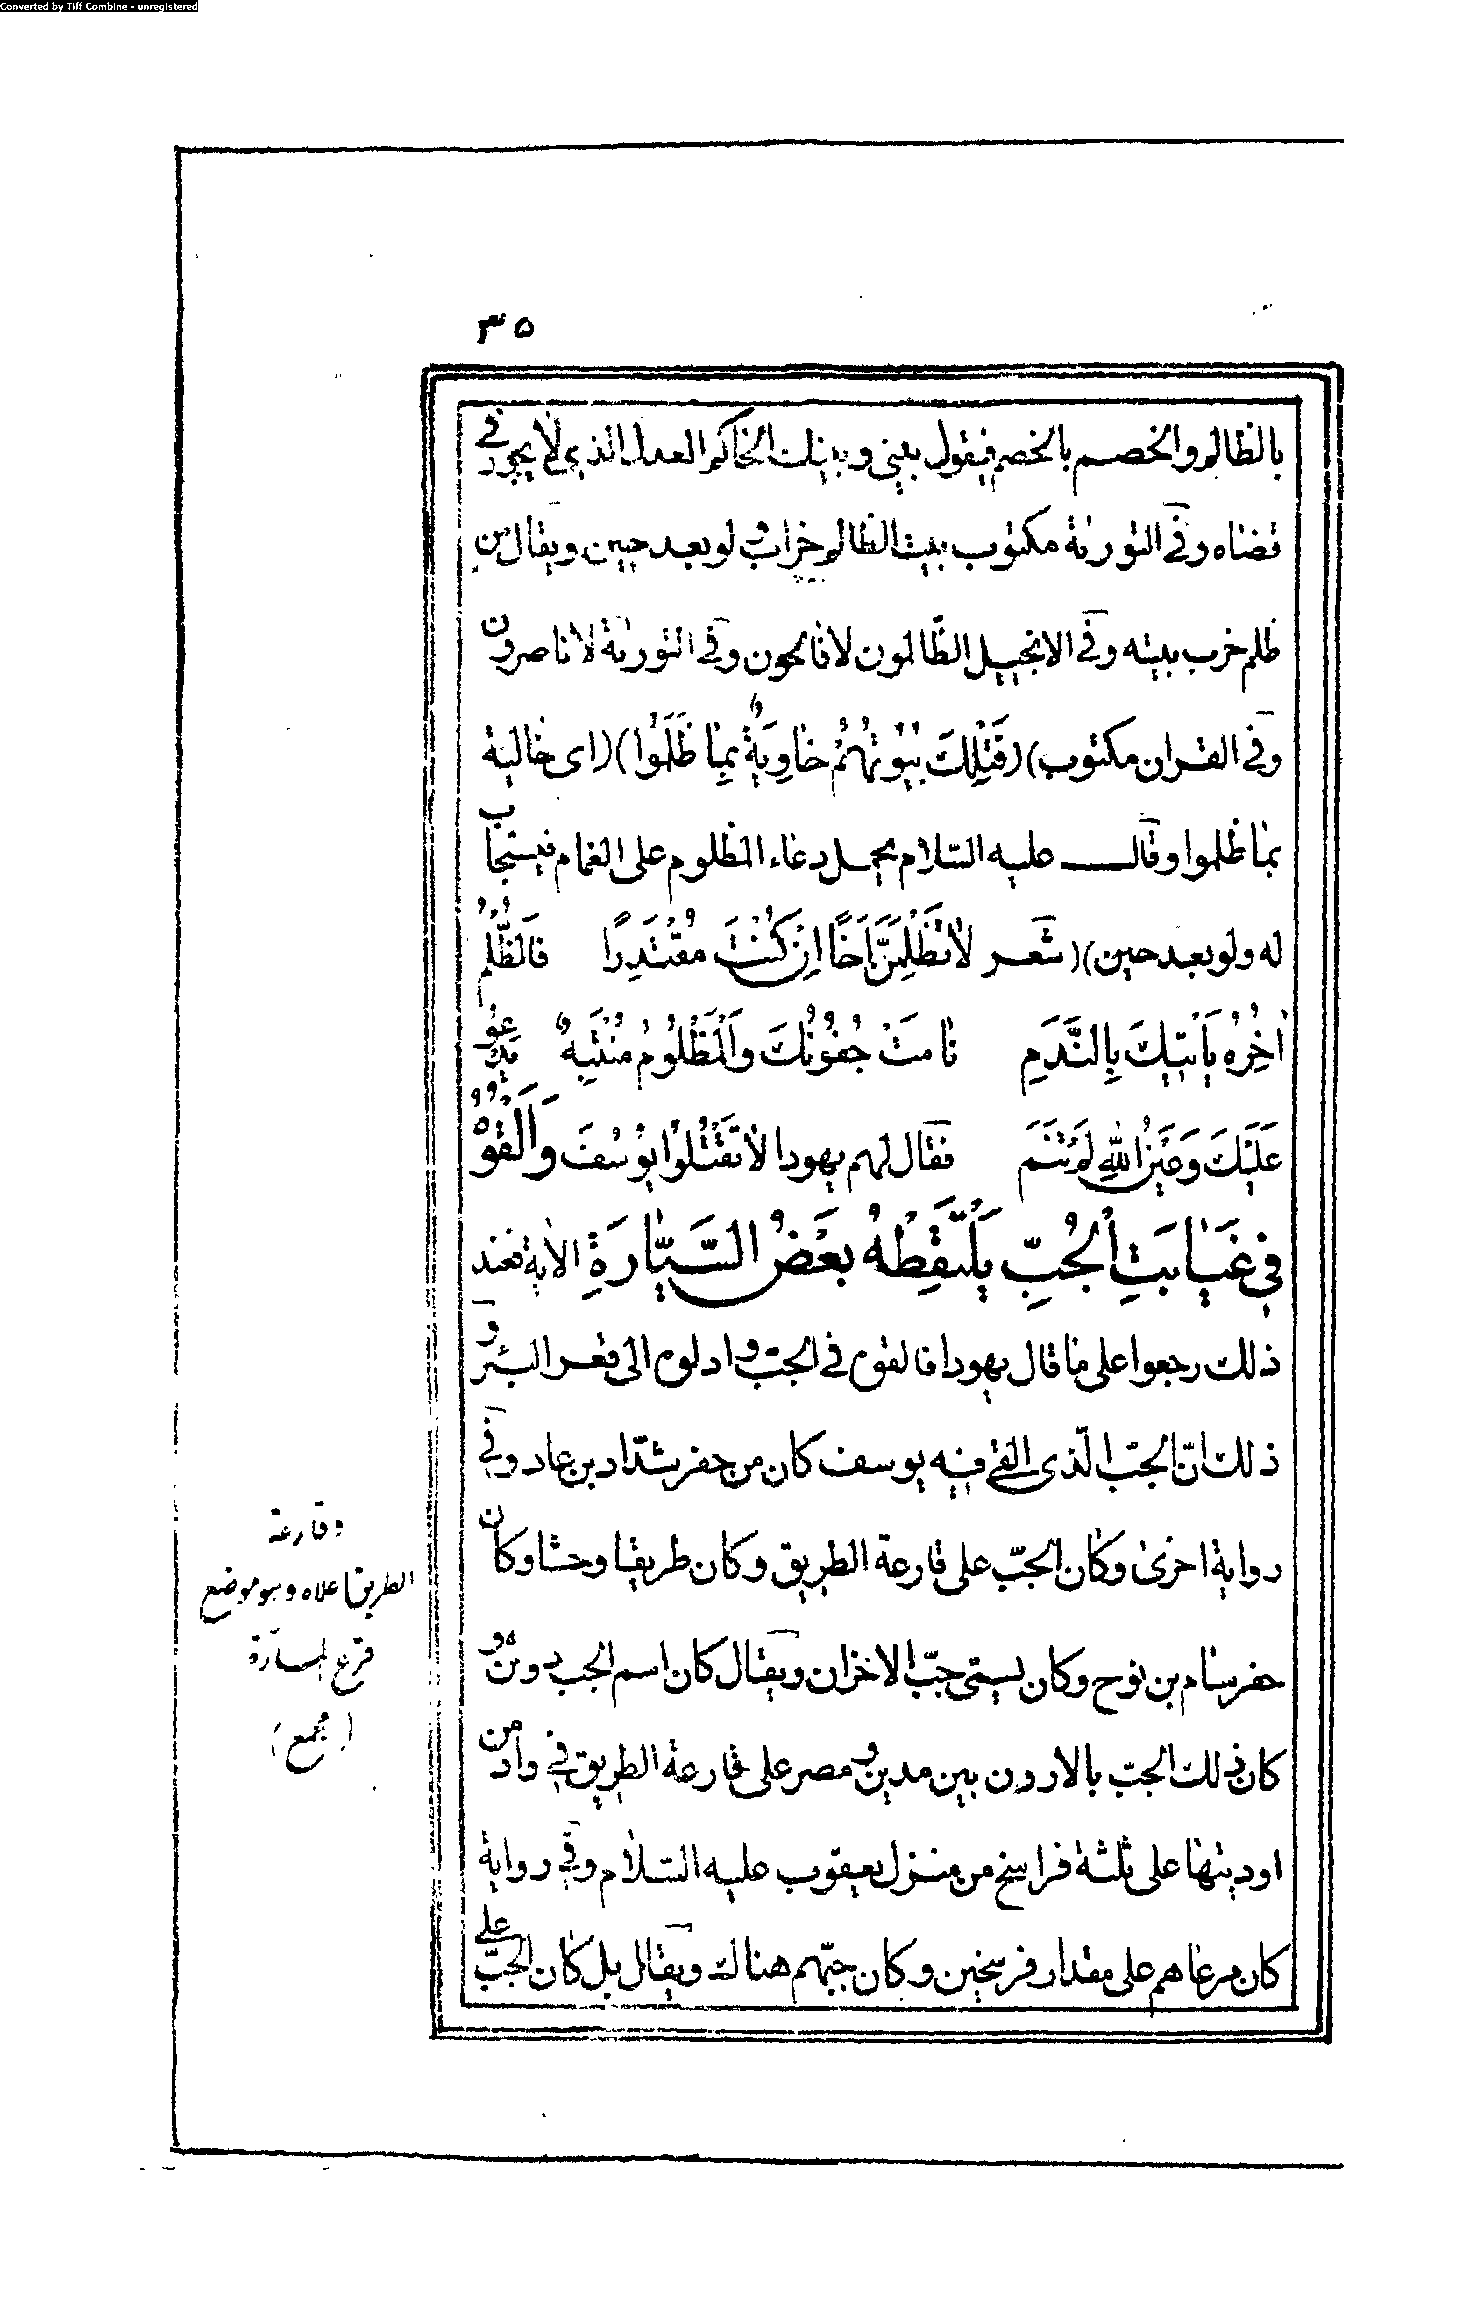 Converted by Tiff Combine - unregistered
۳۵
بالظالم والخصم بالخصم فيقول بينى وبينك الحاكم العدل الذي لا يجور فى
قضاه وفى التورية مكتوب بيت الظالم خراب لو بعد حين ويقال من
ظلم خرب بيته وفى الانجيل الظّالمون لا فالحون وفى التورية لا ناصرون
وفى القران مكتوب)(فَتِلْكَ بُيُوتُهُمْ خاوِيَةً بِمٰا ظَلَمُوا)(اى خالية
بما ظلموا وقال عليه السّلام يحمل دعاء المظلوم على الغمام فيستجاب
له ولو بعد حين)(شعر لاٰ تَظْلِمَنَّ اَخًا اِنْ كُنْتَ مُقْتَدِرًا فَالظُّلْمُ
اٰخِرُهُ يَأْتيكَ بِالنَّدَمِ نٰامَتْ جُفُونُكَ وَالْمَظْلُومُ مُنْتَبِهٌ يَدْعُو
عَلَيْكَ وَعَيْنُ اللهِ لَمْ تَنَمِ فقال لهم يهودا لاٰ تَقْتُلُوا يُوسُفَ وَاَلْقُوهُ
فِي غَيٰابَتِ الْجُبِّ يَلْتَقِطْهُ بَعْضُ السَّيّٰارَةِ الاية فعند
ذلك رجعوا على ما قال يهودا فالقوه في الجبّ وادلوه الى قعر البئر و
ذلك انّ الجبّ الّذى القى فيه يوسف كان من حفر شدّاد بن عاد وفى
رواية اخرىٰ وكان الجبّ على قارعة الطريق وكان طريقا وحشا وكان
حفر سام بن نوح وكان يسمّى جبّ الاحزان ويقال كان اسم الجب دوثن و
كان ذلك الجبّ بالاردن بين مدين و مصر على قارعة الطريق في واد من
اوديتها على ثلثة فراسخ من منزل يعقوب عليه السّلام وفى رواية
كان مرعاهم على مقدار فرسخين وكان جبّهم هناك ويقال بل كان الجبّ على
وقارعة
الطريق اعلاه وهو موضع
قرع المارّة
(مجمع)